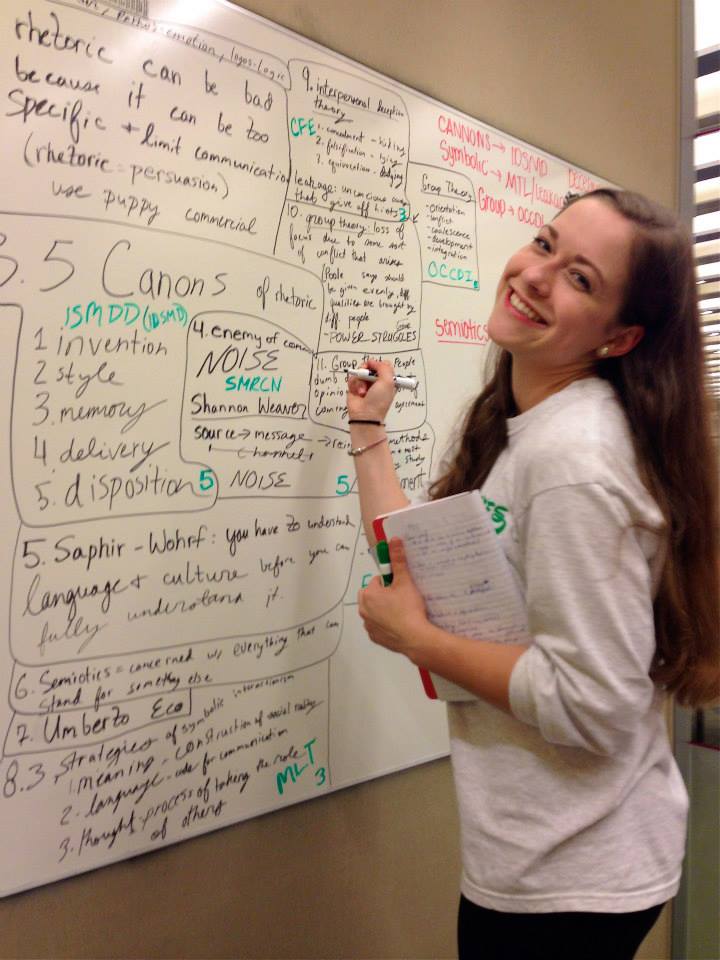 Pathos-emotion, logos-logic
rhetoric can be bad
because it can be too
specific + limit communication
(rhetoric = persuasion)
use puppy commercial
3.5 Canons of rhetoric
ISMDD (IDSMD)
1 invention
2 style
3. memory
4 delivery
5. disposition 5
4. enemy of
NOISE
SMRCN
Shannon Weaver
source → message →
channel
NOISE 5
5. Saphir - Wohrf: you have to understand
language + culture before you can
fully understand it.
6. Semiotics = concerned w/ everything that can
stand for something else
7. Umberto Eco
8. 3 strategies of symbolic interactionism
1. meaning - construction of social reality
2. language - code for communication
3. thought - process of taking the role
of others
MLT
3
9. interpersonal deception
theory
CFE
1. concealment - hiding
2. falsification - lying
3. equivocation - dodging
leakage: unconscious
that give off hints 3
10. group theory: loss of
focus due to some sort
of conflict that arises
(Poole says should
be given evenly, diff
qualities are brought by
diff people
- POWER STRUGGLES
11. Group people
dumb
opinion
agreement
methods
study
Group Theory
- orientation
- conflict
- coalescence
- development
- integration
OCCDI
CANNONS → IDSMD
Symbolic → MTL/
Group → OCCDI
semiotics